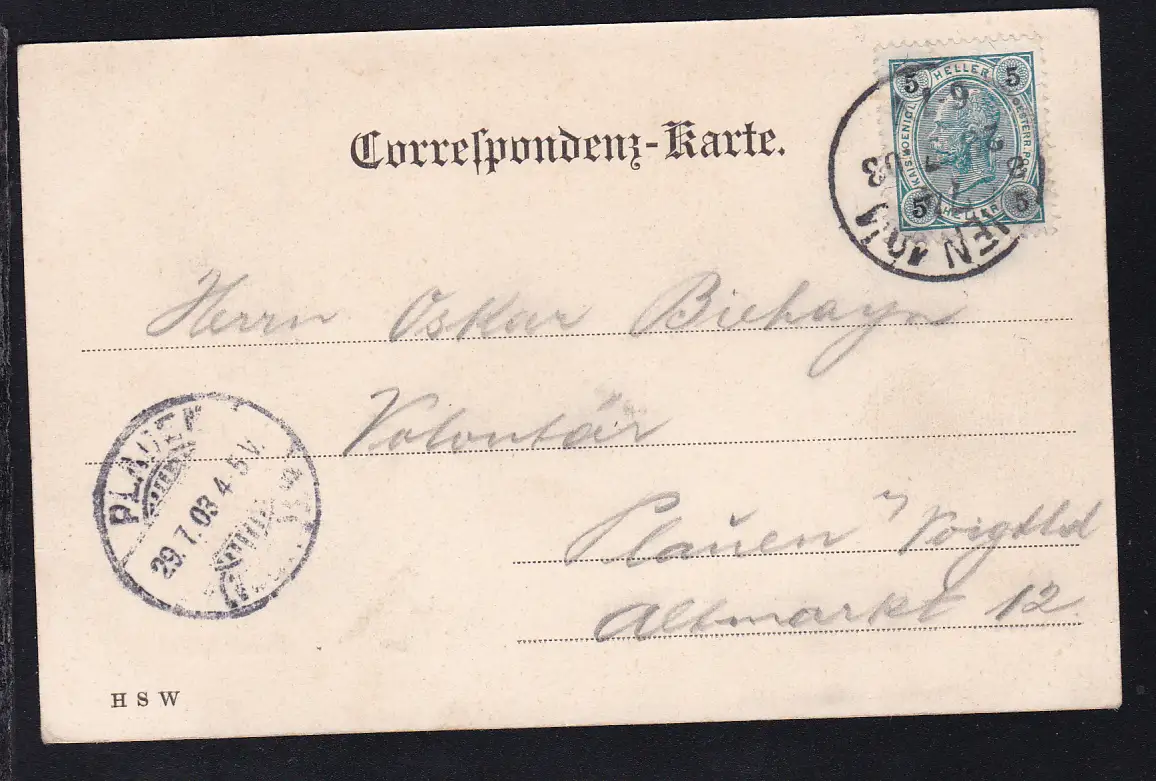 Correspondenz-Karte.
5 HELLER 5
KAIS. KOENIGL. OESTERR. POST
5 HELLER 5
Herrn Oskar Biehayn
Volontär
Plauen i/ Voigtld
Altmarkt 12
PLAUEN
29.7.03 4-5 V.
H S W